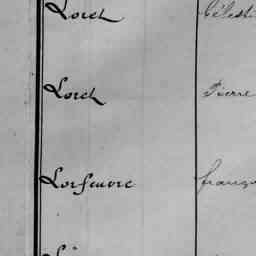 Loret Célest
Loret Pierre
Lorfeuvre franço